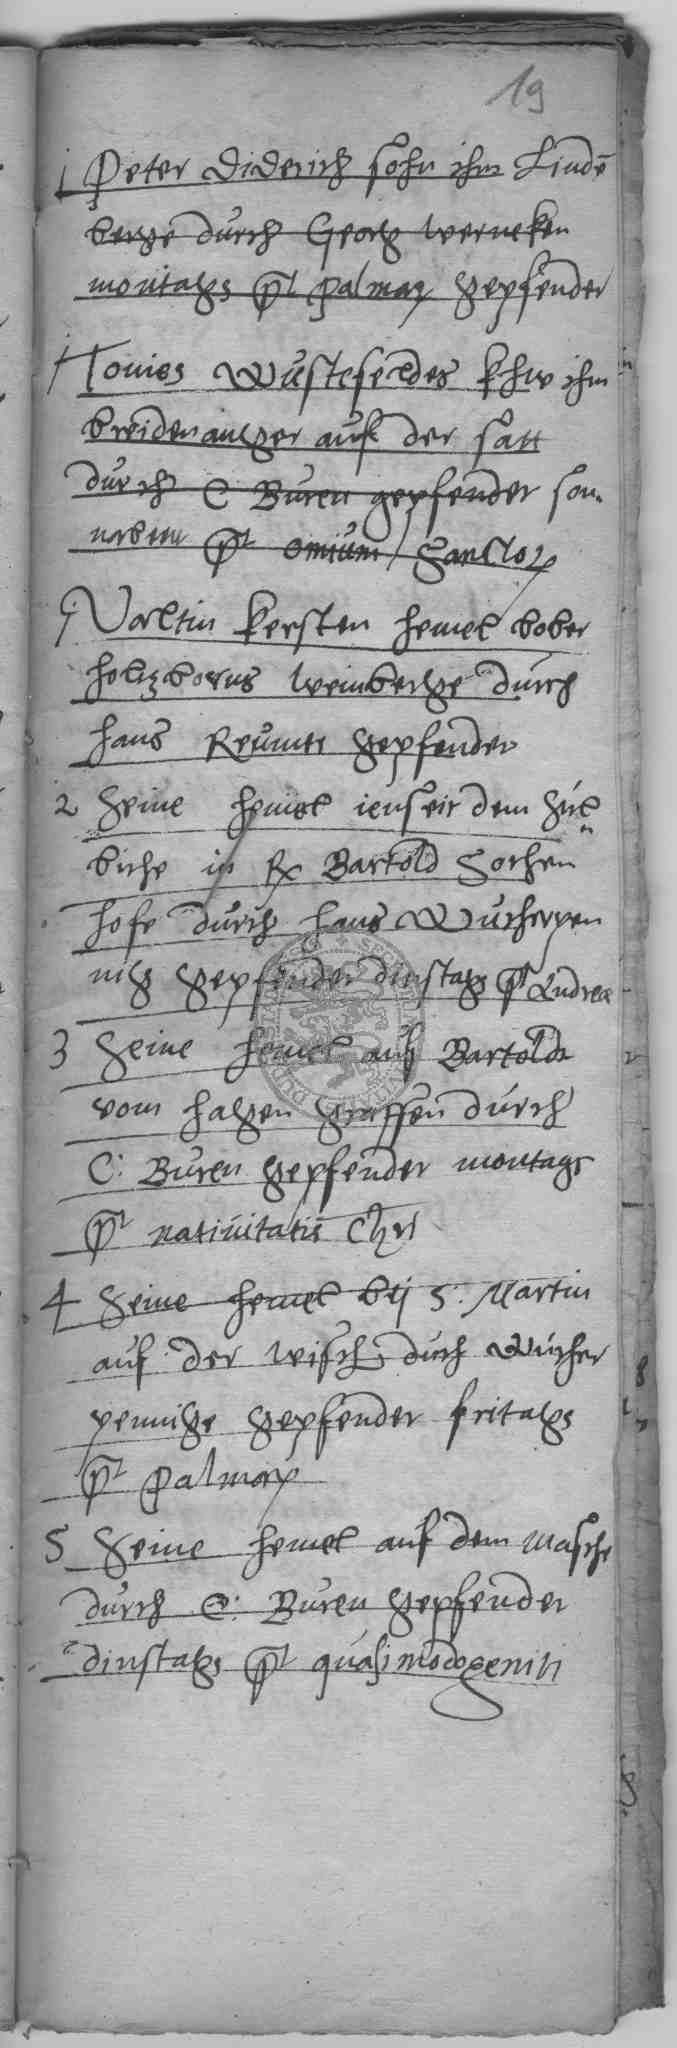 19
1 Peter Diderich sohn ihm Lindē
berge durch Georg Werneken
montags pt palmar gepfender
1 Tonies Wustefeldes khw ihm
breiden anger auf der satt
durch C Buren gepfender son„
nabent pt omium Sanctor
1 Valtin Kersten hemel bober
holtzborns weinberge durch
hans Reumers gepfender
2 Seine hemel ienseit dem
biche in Bartold Gothen
hofe durch hans Wucherpen
nig gepfender dinstags pt Andreae
3 Seine hemel auf Bartolds
vom hagen graffen durch
C: Buren gepfender montags
pt natiuitatis Chri
4 Seine hemel bij S: Martin
auf der wisch durch Wucher
pennige gepfender fritags
pt palmar
5 Seine hemel auf dem masche
durch C: Buren gepfender
dinstags pt quasimodogeniti